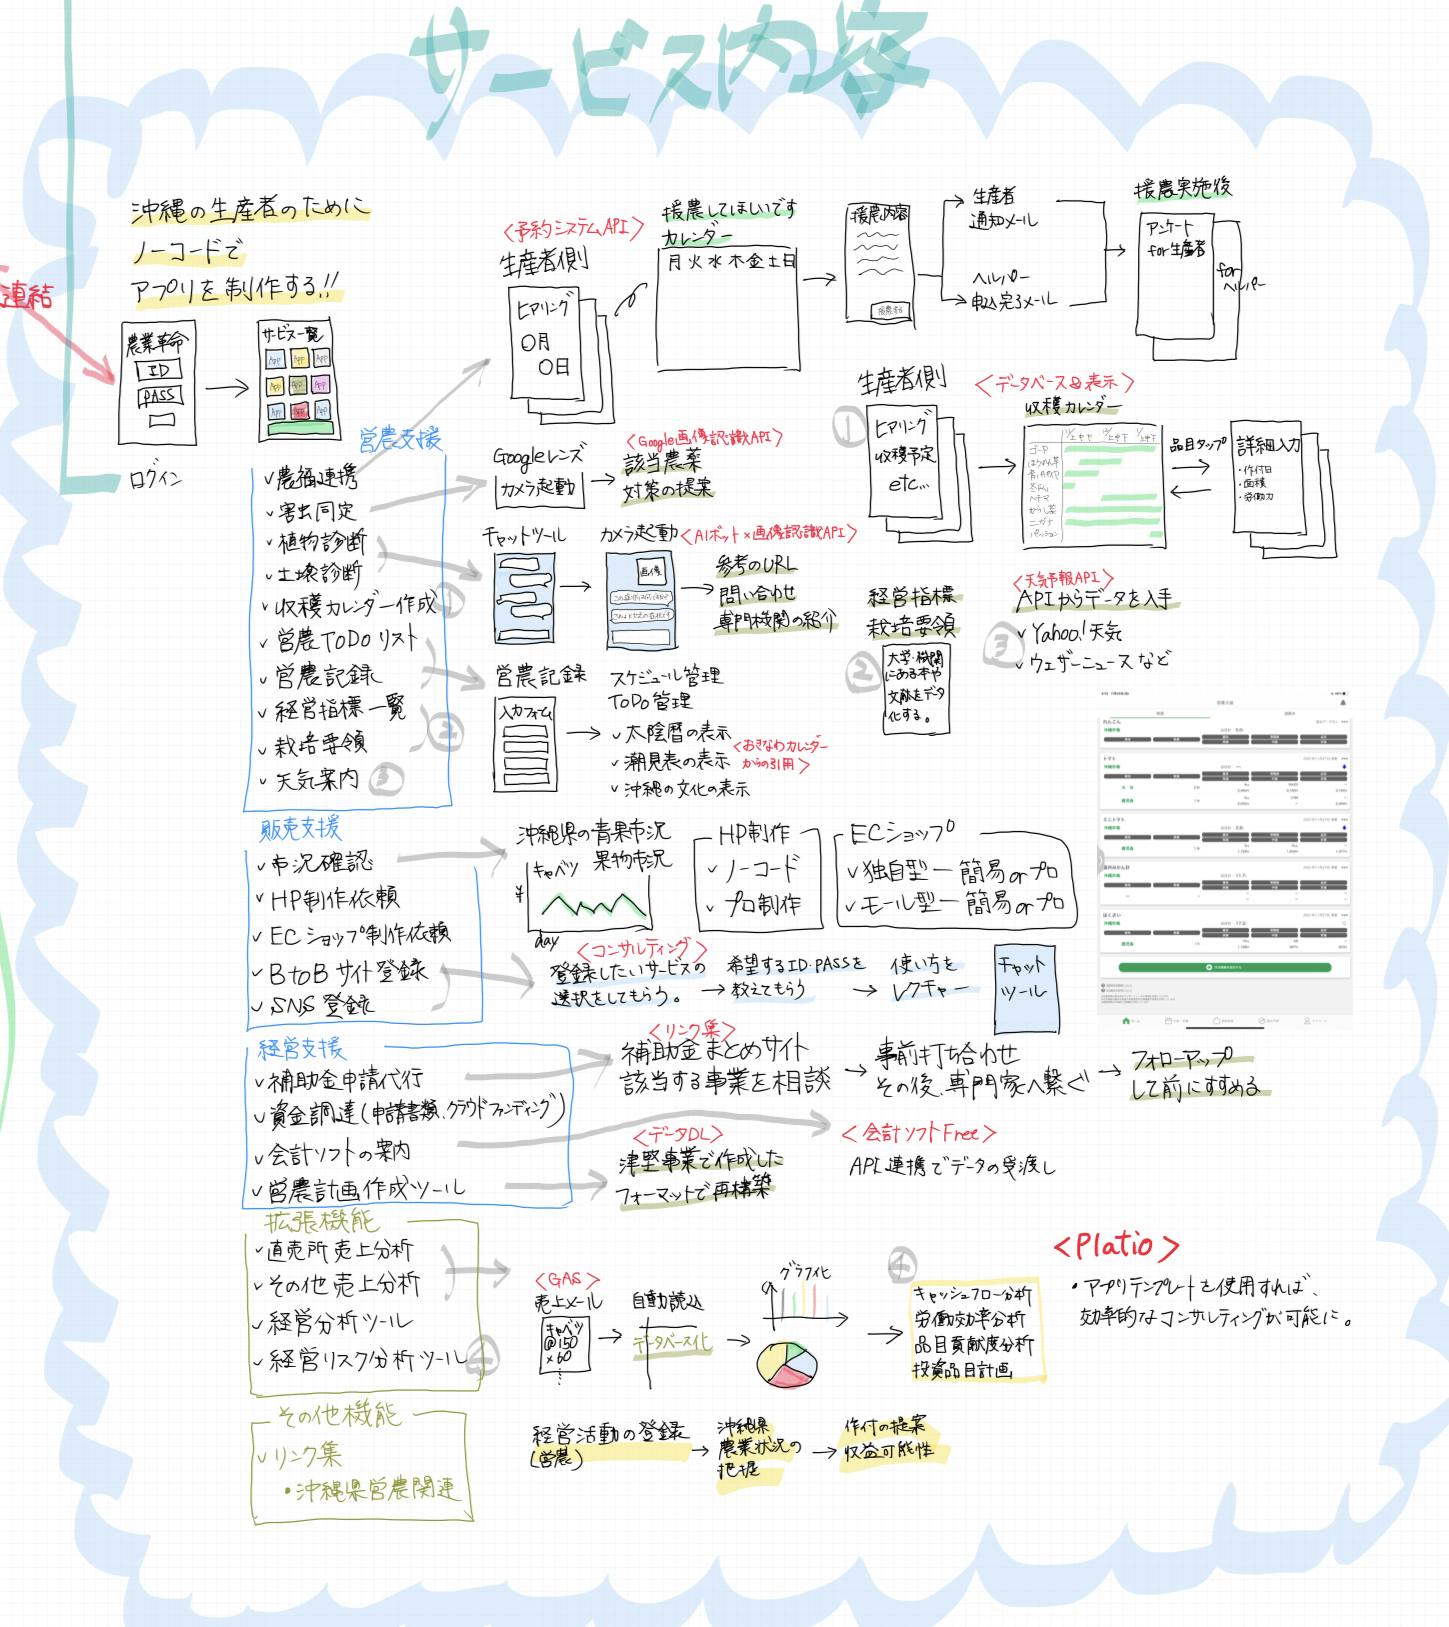 サービス内容
沖縄の生産者のために
ノーコードで
アプリを制作する!!
連結
農業革命
ID
PASS
ログイン
サービス一覧
App App App
App App App
App App App
営農支援
✓農福連携
✓害虫同定
✓植物診断
✓土壌診断
✓収穫カレンダー作成
✓営農ToDoリスト
✓営農記録
✓経営指標一覧
✓栽培要領
✓天気案内
①
②
③
販売支援
✓市況確認
✓HP制作依頼
✓ECショップ制作依頼
✓BtoBサイト登録
✓SNS登録
経営支援
✓補助金申請代行
✓資金調達(申請書類、クラウドファンディング)
✓会計ソフトの案内
✓営農計画作成ツール
拡張機能
✓直売所売上分析
✓その他売上分析
✓経営分析ツール
✓経営リスク分析ツール
④
その他機能
✓リンク集
・沖縄県営農関連
<予約システムAPI>
生産者側
ヒアリング
〇月
〇日
援農してほしいです
カレンダー
月火水木金土日
援農内容
援農する
生産者
通知メール
ヘルパー
申込完了メール
援農実施後
アンケート
for生産者
for
ヘルパー
Googleレンズ
カメラ起動
<Google画像認識API>
該当農薬
対策の提案
チャットツール
カメラ起動
<AIボット×画像認識API>
画像
参考のURL
問い合わせ
専門機関の紹介
営農記録
入力フォーム
スケジュール管理
ToDo管理
✓太陰暦の表示
✓潮見表の表示
✓沖縄の文化の表示
<おきなわカレンダー
からの引用>
①
生産者側
ヒアリング
収穫予定
etc...
<データベース&表示>
収穫カレンダー
ゴーヤ
ヘチマ
からし菜
ニガナ
パッション
品目タップ
詳細入力
・作付日
・面積
・労働力
②
経営指標
栽培要領
大学・機関
にある本や
文献をデータ
化する。
③
<天気予報API>
APIからデータを入手
✓Yahoo!天気
✓ウェザーニュースなど
トマト
ミニトマト
はくさい
沖縄県の青果市況
果物市況
キャベツ
¥
day
HP制作
✓ノーコード
✓プロ制作
ECショップ
✓独自型ー簡易orプロ
✓モール型ー簡易orプロ
<コンサルティング>
登録したいサービスの
選択をしてもらう。
希望するID・PASSを
教えてもらう
使い方を
レクチャー
チャット
ツール
<リンク集>
補助金まとめサイト
該当する事業を相談
事前打ち合わせ
その後、専門家へ繋ぐ
フォローアップ
して前にすすめる
<データDL>
津堅事業で作成した
フォーマットで再構築
<会計ソフトFree>
API連携でデータの受渡し
<GAS>
売上メール
キャベツ
@150
×60
自動読込
データベース化
グラフ化
④
キャッシュフロー分析
労働効率分析
品目貢献度分析
投資品目計画
<Platio>
・アプリテンプレートを使用すれば、
効率的なコンサルティングが可能に。
経営活動の登録
(営農)
沖縄県
農業状況の
把握
作付の提案
収益可能性